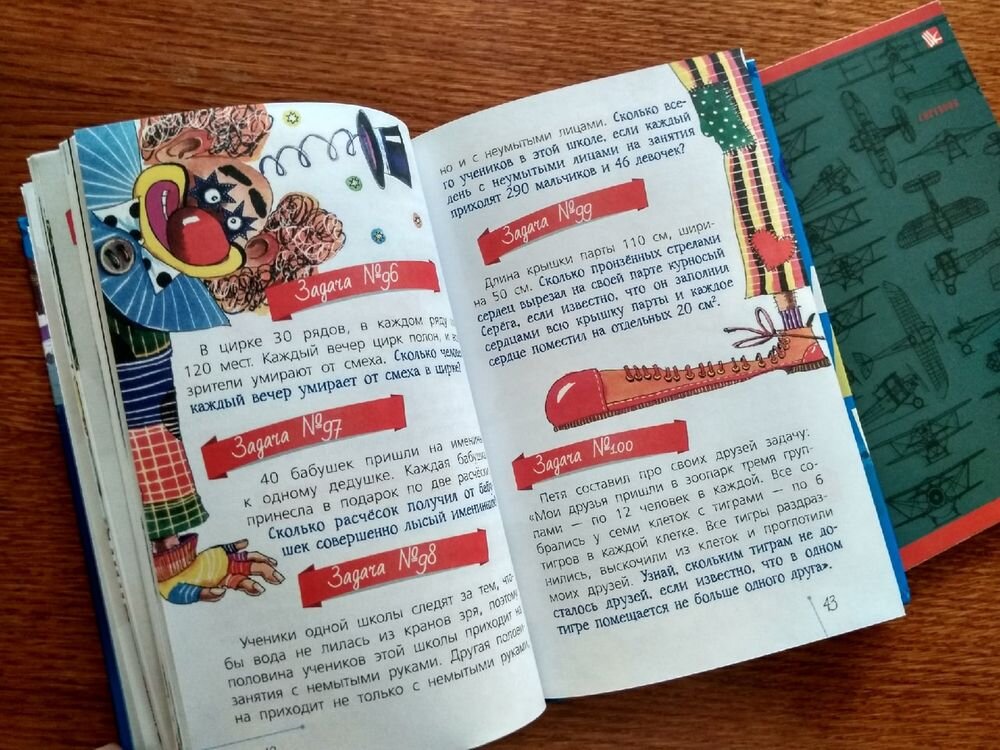 Задача №96
В цирке 30 рядов, в каждом ряду
120 мест. Каждый вечер цирк полон, и
зрители умирают от смеха. Сколько
каждый вечер умирает от смеха в цирке?
Задача №97
40 бабушек пришли на
к одному дедушке. Каждая
принесла в подарок по две
Сколько расчёсок получил от
шек совершенно лысый
Задача №98
Ученики одной школы следят за тем, что-
бы вода не лилась из кранов зря, поэтому
половина учеников этой школы приходит на
занятия с немытыми руками. Другая полови-
на приходит не только с немытыми руками,
но и с неумытыми лицами. Сколько все-
го учеников в этой школе, если каждый
день с неумытыми лицами на занятия
приходят 290 мальчиков и 46 девочек?
Задача №99
Длина крышки парты 110 см, шири-
на 50 см. Сколько пронзённых стрелами
сердец вырезал на своей парте курносый
Серёга, если известно, что он заполнил
сердцами всю крышку парты и каждое
сердце поместил на отдельных 20 см².
Задача №100
Петя составил про своих друзей задачу:
«Мои друзья пришли в зоопарк тремя груп-
пами — по 12 человек в каждой. Все со-
брались у семи клеток с тиграми — по 6
тигров в каждой клетке. Все тигры раздраз-
нились, выскочили из клеток и проглотили
моих друзей. Узнай, скольким тиграм не до-
сталось друзей, если известно, что в одном
тигре помещается не больше одного друга».
43